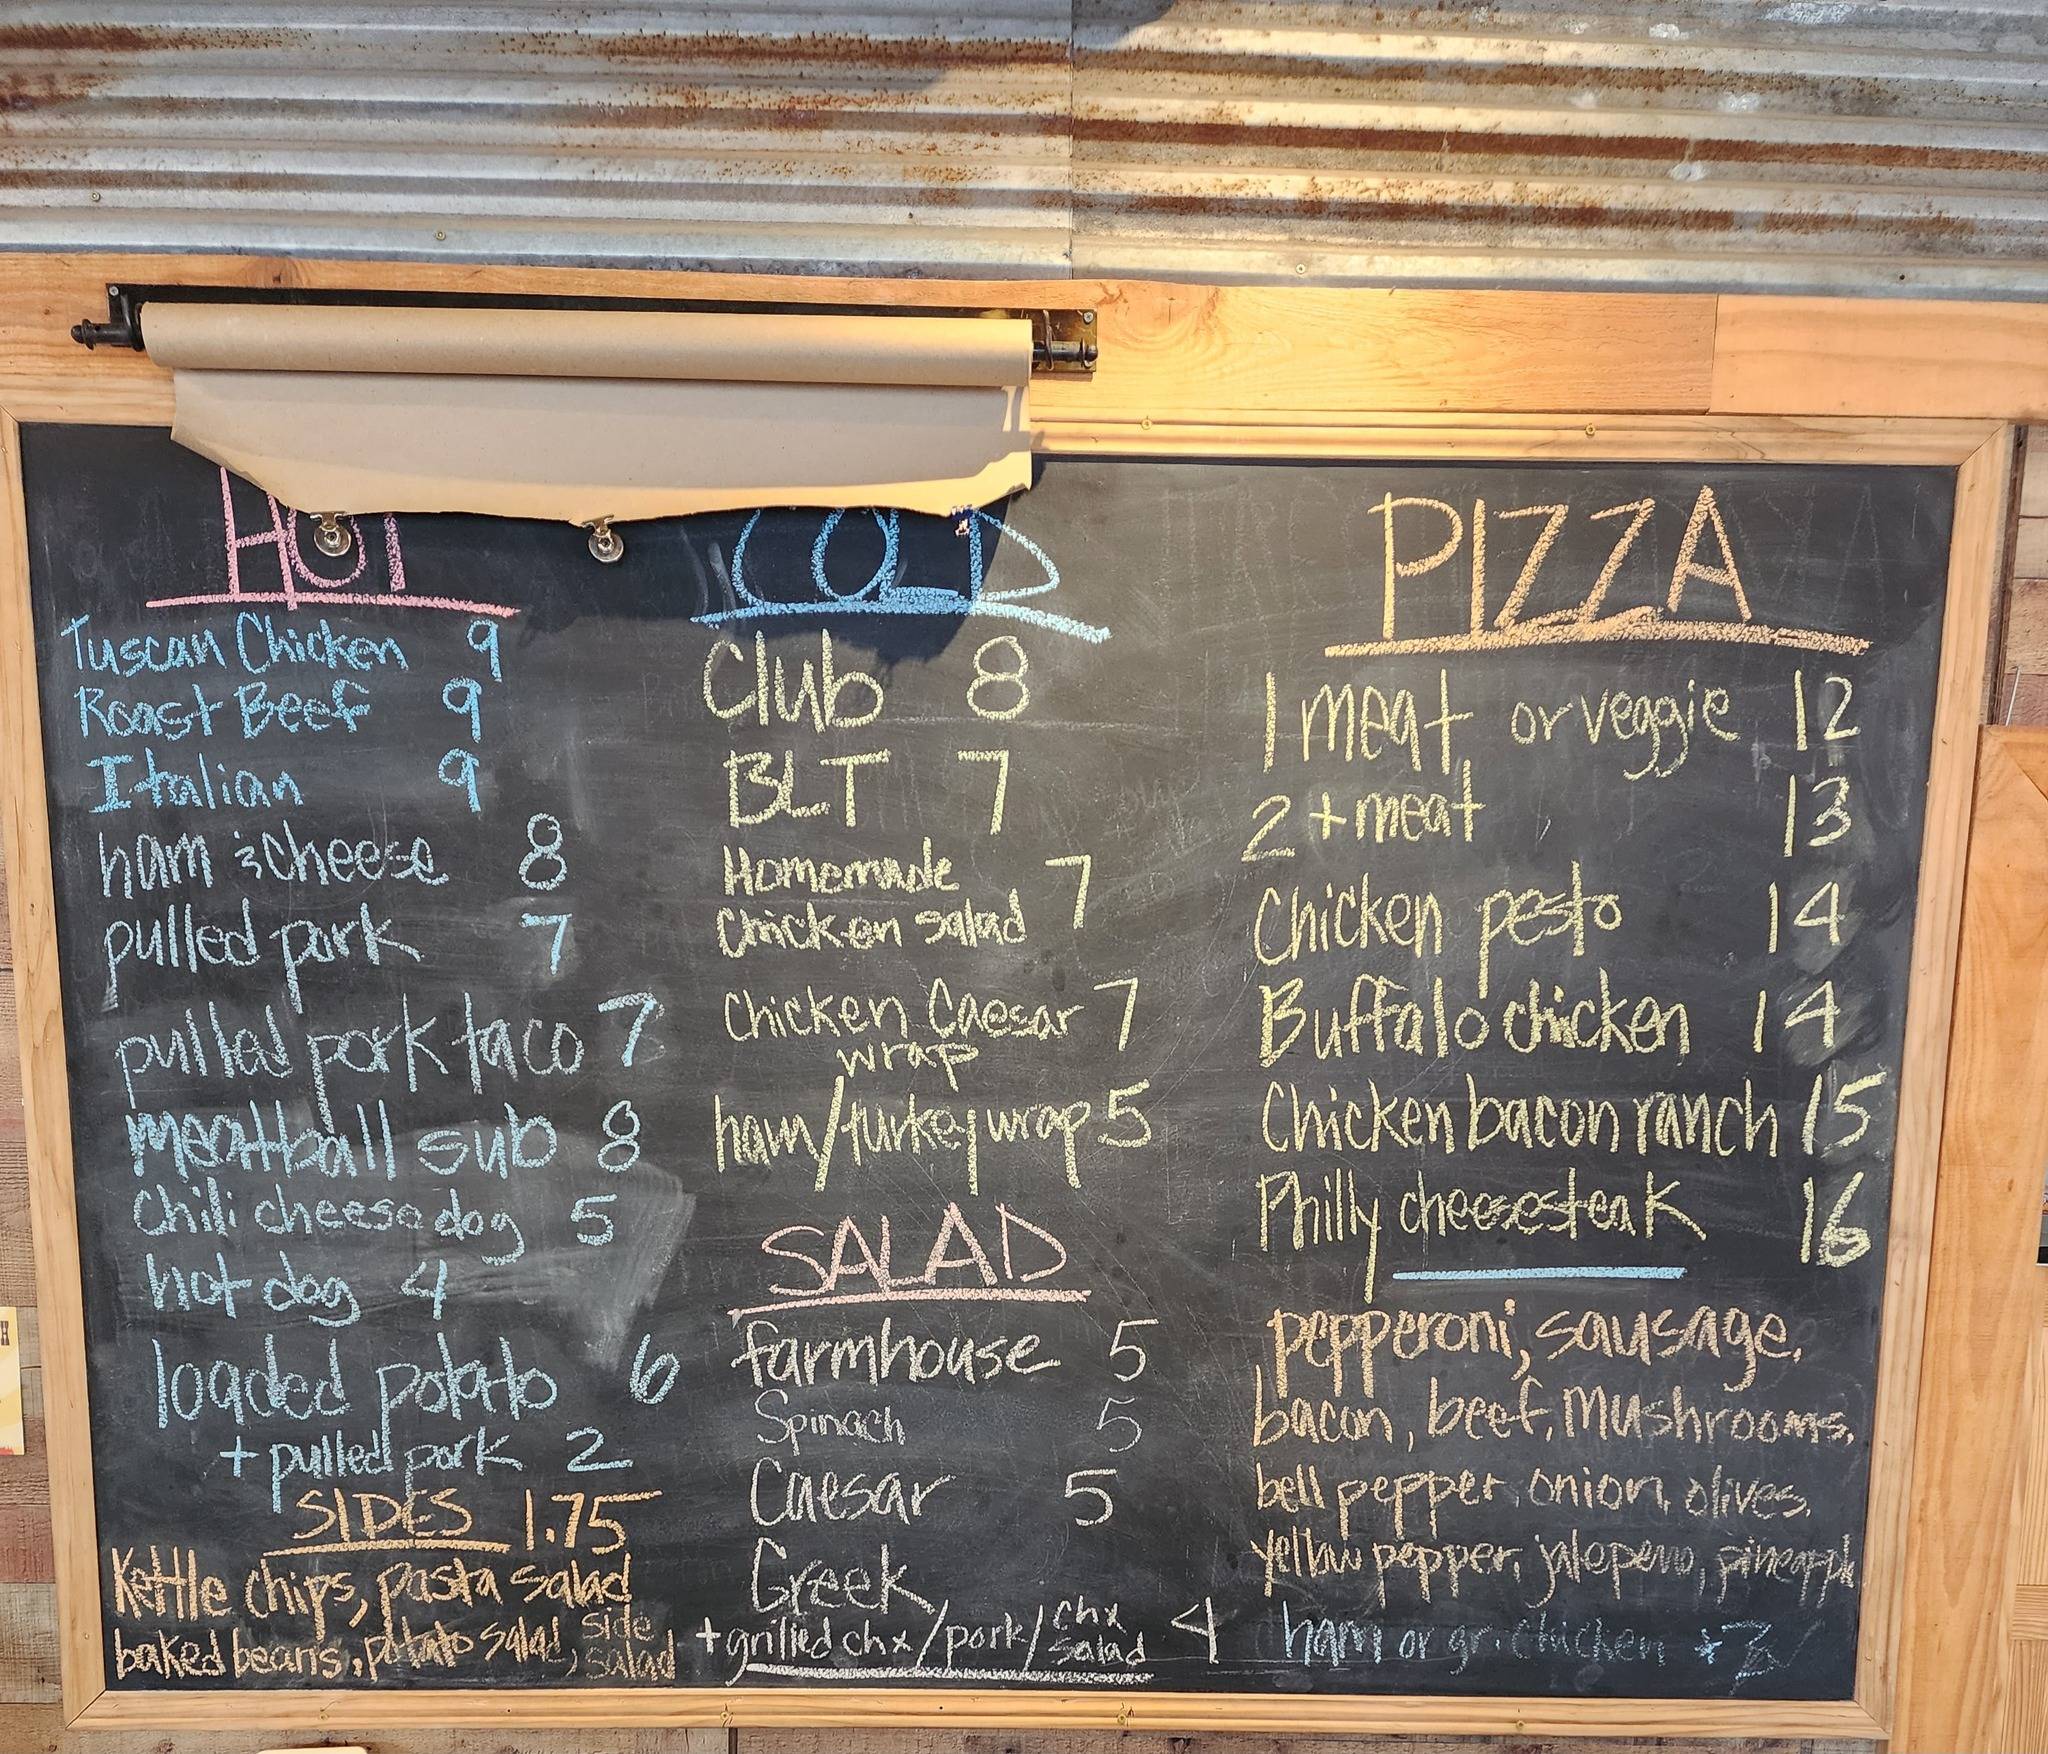 HOT
Tuscan Chicken 9
Roast Beef 9
Italian 9
ham & cheese 8
pulled pork 7
pulled pork taco 7
meatball sub 8
Chili cheese dog 5
hot dog 4
loaded potato 6
+ pulled pork 2
SIDES 1.75
Kettle chips, pasta salad
baked beans, potato salad, side salad
COLD
Club 8
BLT 7
Homemade 7
Chicken salad
Chicken Caesar 7
wrap
ham/turkey wrap 5
SALAD
farmhouse 5
Spinach 5
Caesar 5
Greek
+ grilled chx/pork/chx salad 4
PIZZA
1 meat or veggie 12
2 + meat 13
Chicken pesto 14
Buffalo chicken 14
Chicken bacon ranch 15
Philly cheesesteak 16
pepperoni, sausage,
bacon, beef, mushrooms,
bell pepper, onion, olives,
yellow pepper, jalopeno, pineapple
ham or gr. chicken